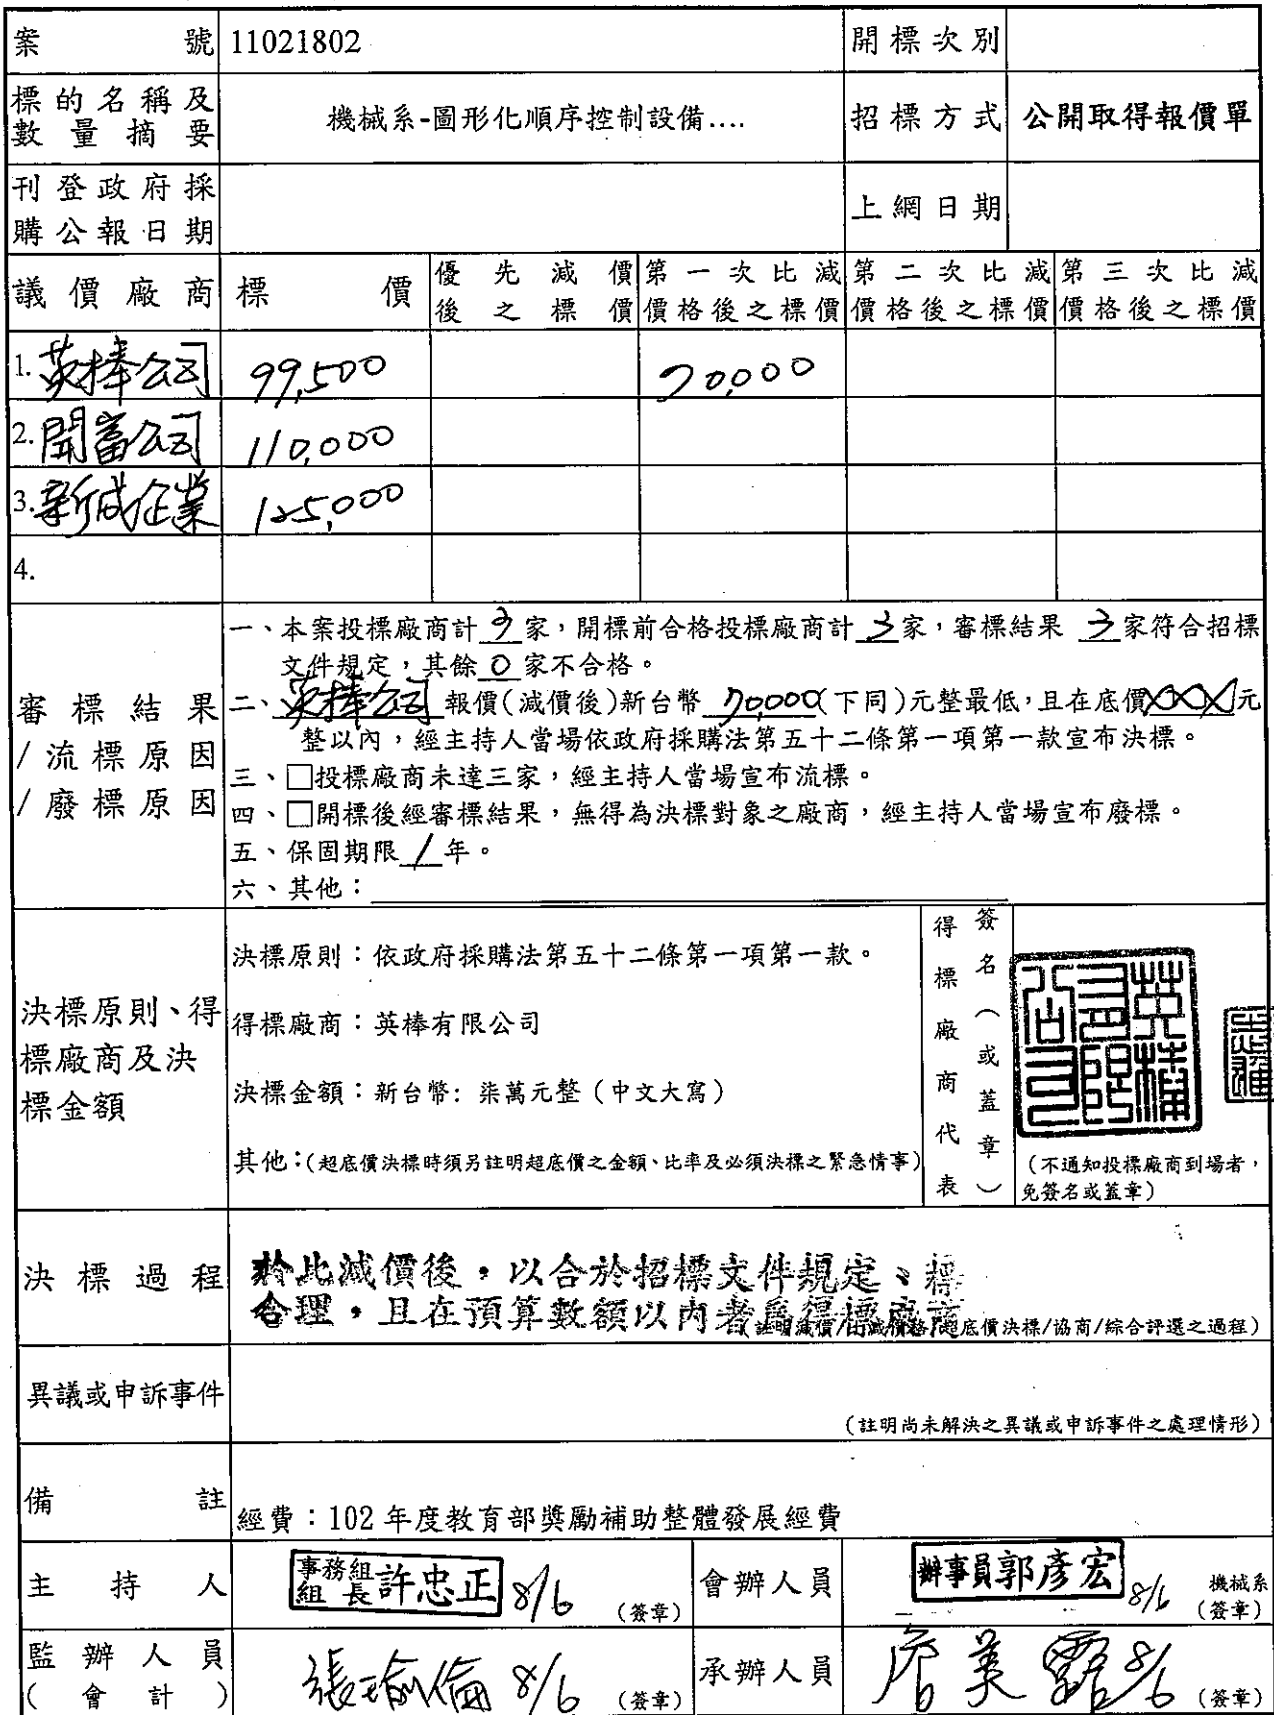 案號 11021802 開標次別
標的名稱及數量摘要 機械系-圖形化順序控制設備.... 招標方式 公開取得報價單
刊登政府採購公報日期 上網日期
議價廠商 標價 優先減價後之標價 第一次比減價格後之標價 第二次比減價格後之標價 第三次比減價格後之標價
1. 英棒公司 99,500 70,000
2. 聞富公司 110,000
3. 新成企業 125,000
4.
審標結果/流標原因/廢標原因
一、本案投標廠商計 3 家，開標前合格投標廠商計 3 家，審標結果 3 家符合招標
文件規定，其餘 0 家不合格。
二、英棒公司 報價(減價後)新台幣 70,000(下同)元整最低，且在底價XXX元
整以內，經主持人當場依政府採購法第五十二條第一項第一款宣布決標。
三、□投標廠商未達三家，經主持人當場宣布流標。
四、□開標後經審標結果，無得為決標對象之廠商，經主持人當場宣布廢標。
五、保固期限 1 年。
六、其他：
決標原則、得標廠商及決標金額
決標原則：依政府採購法第五十二條第一項第一款。
得標廠商：英棒有限公司
決標金額：新台幣: 柒萬元整（中文大寫）
其他：(超底價決標時須另註明超底價之金額、比率及必須決標之緊急情事)
得標廠商代表 簽名（或蓋章）
英棒有限公司
(不通知投標廠商到場者，
免簽名或蓋章)
決標過程
於比減價後，以合於招標文件規定、標
合理，且在預算數額以內者為得標廠商
(註明減價/比減價格/超底價決標/協商/綜合評選之過程)
異議或申訴事件
(註明尚未解決之異議或申訴事件之處理情形)
備註 經費：102 年度教育部獎勵補助整體發展經費
主持人 事務組組長許忠正 8/6 (簽章) 會辦人員 辦事員郭彥宏 8/6 機械系(簽章)
監辦人員(會計) 張瑜倫 8/6 (簽章) 承辦人員 詹美露 8/6 (簽章)